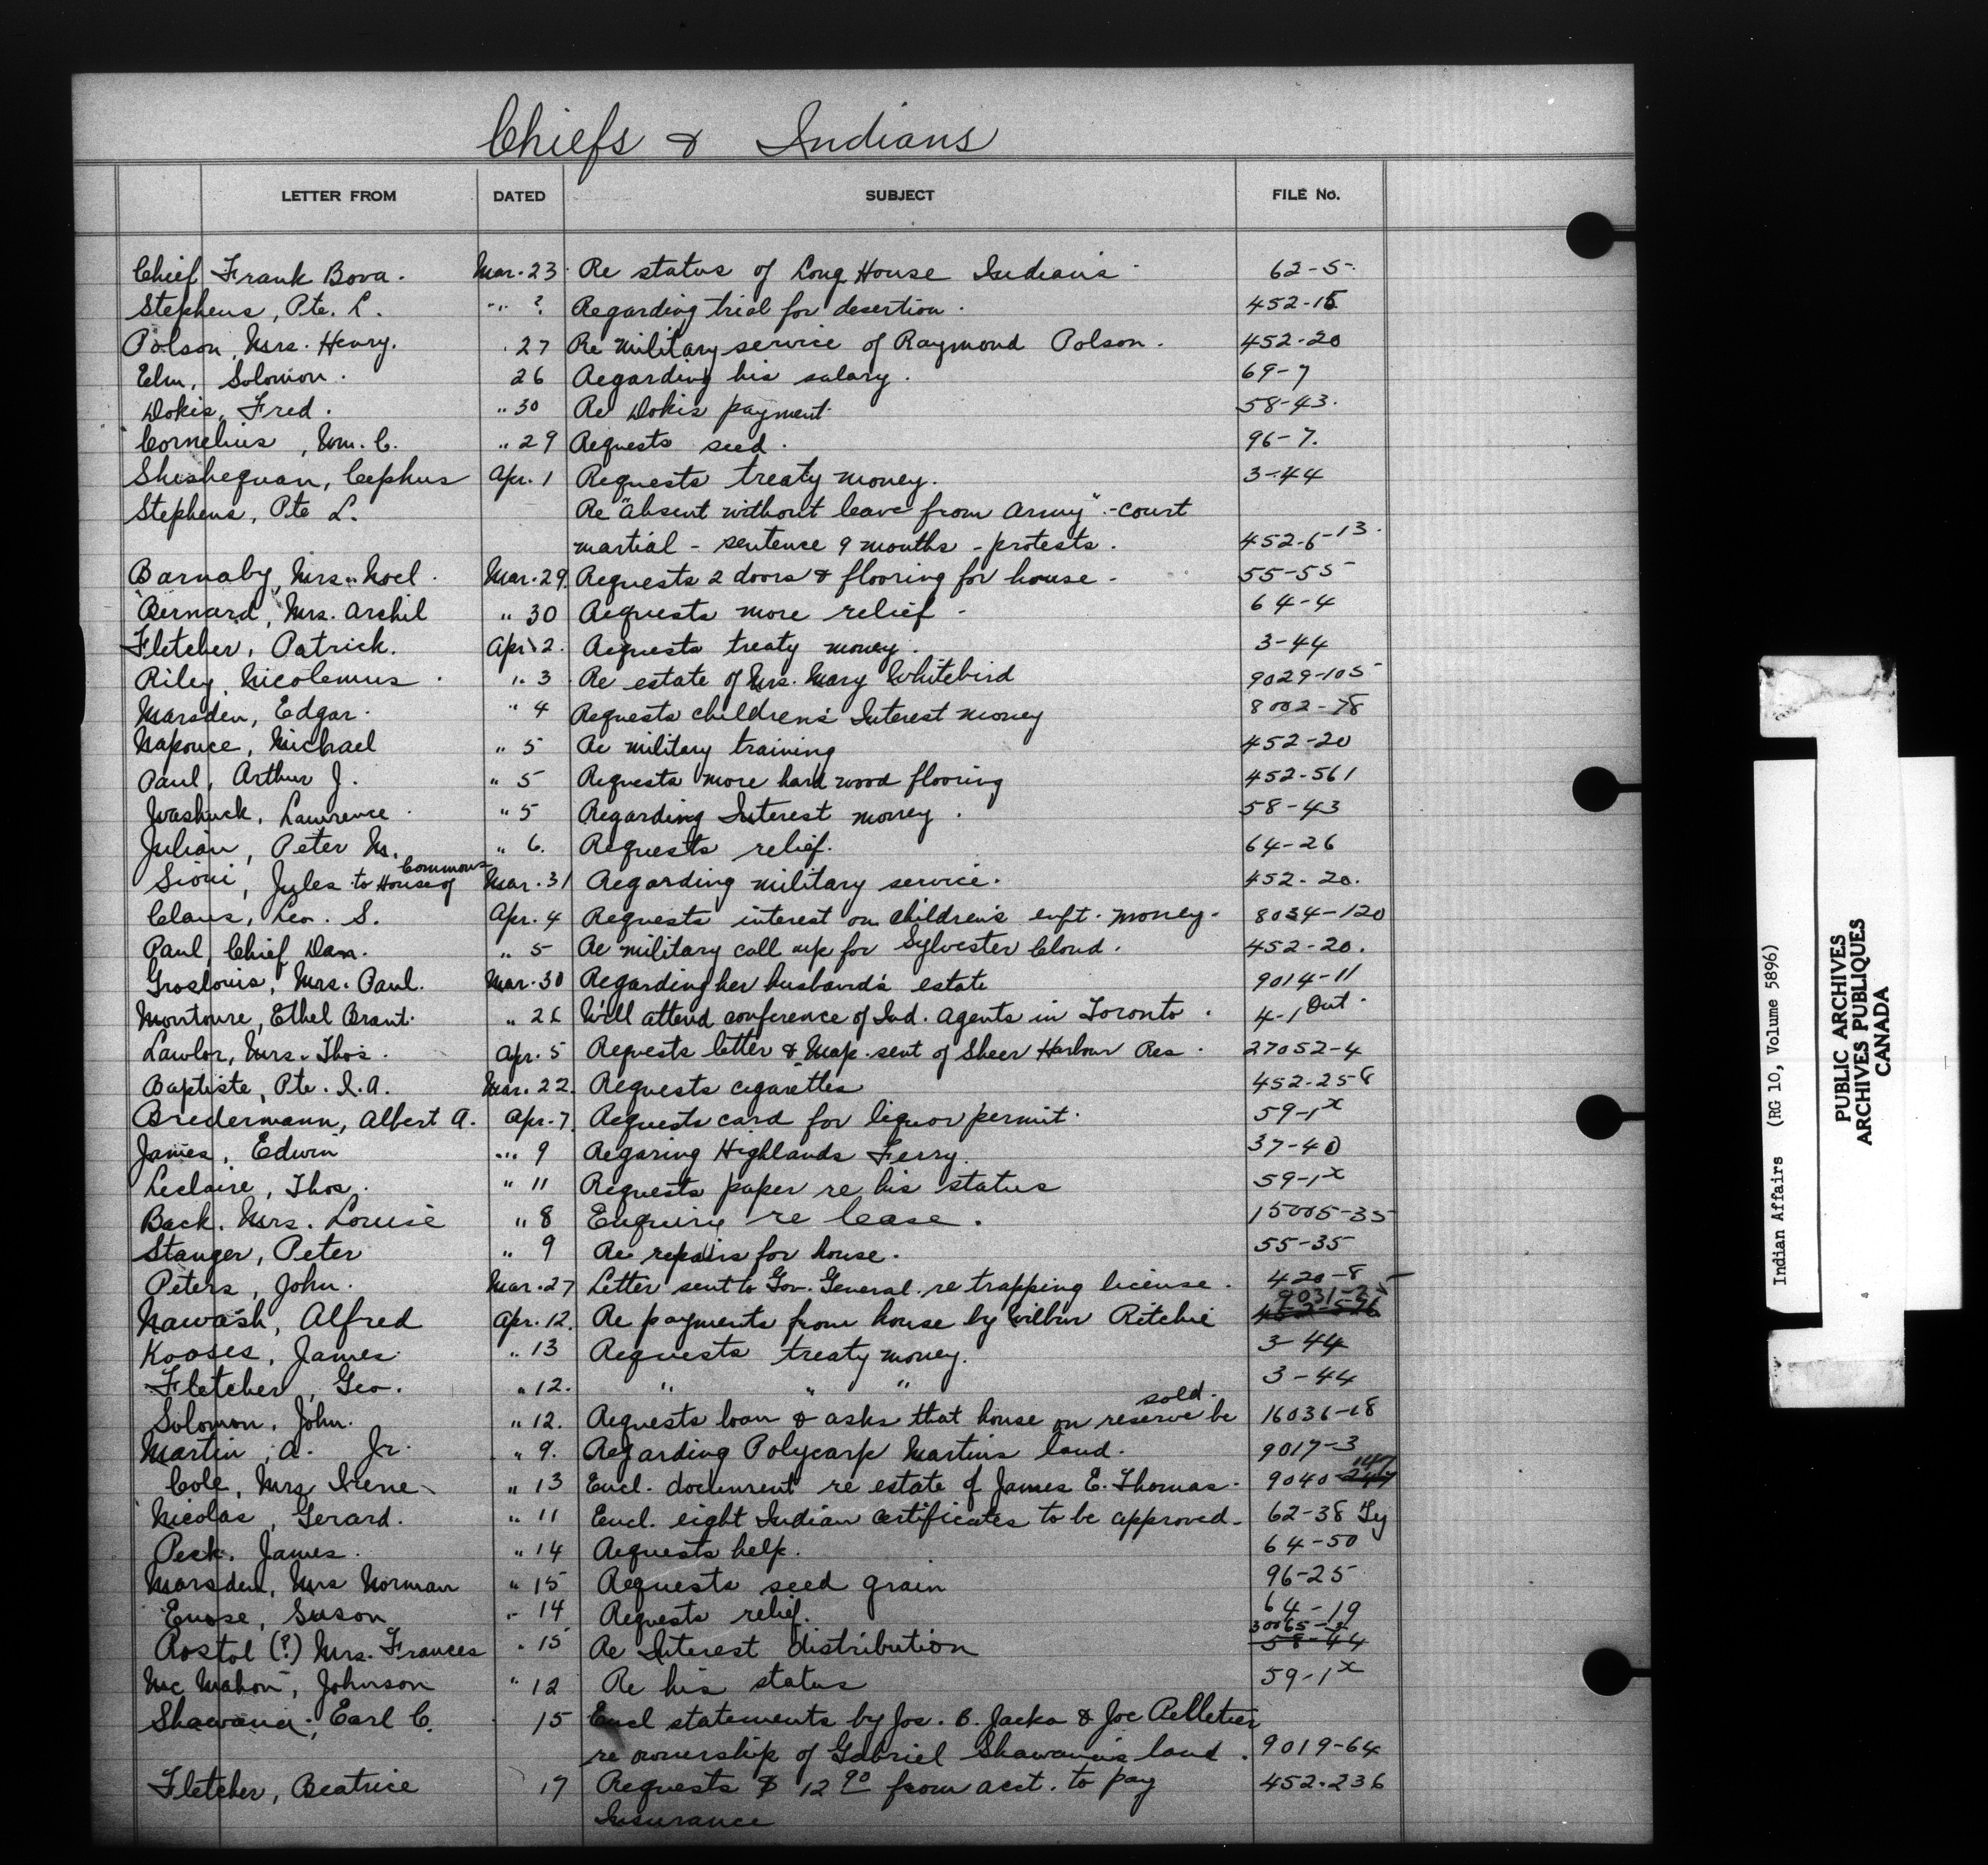 Chiefs & Indians
LETTER FROM DATED SUBJECT FILE No.
Chief Frank Bova. Mar. 23 Re status of Long House Indians 62-5
Stephens, Pte. L. " ? Regarding trial for desertion. 452-15
Polson, Mrs. Henry. 27 Re military service of Raymond Polson. 452-20
Elm, Solomon. 26 Regarding his salary. 69-7
Dokis, Fred. " 30 Re Dokis payment. 58-43.
Cornelius, Wm. C. " 29 Requests seed. 96-7.
Shishequan, Cephus Apr. 1 Requests treaty money. 3-44
Stephens, Pte L. Re "absent without leave from army" - court
martial - sentence 9 months - protests. 452-6-13.
Barnaby, Mrs. Noel. Mar. 29. Requests 2 doors & flooring for house. 55-55
Bernard, Mrs. Archil " 30 Requests more relief 64-4
Fletcher, Patrick. Apr. 2. Requests treaty money. 3-44
Riley, Nicolemus. " 3 Re estate of Mrs. Mary Whitebird 9029-105
Marsden, Edgar. " 4 Requests children's Interest money 8002-78
Napouce, Michael " 5 Re military training 452-20
Paul, Arthur J. " 5 Requests more hard wood flooring 452-561
Washuck, Lawrence " 5 Regarding Interest money. 58-43
Julian, Peter M. " 6. Requests relief. 64-26
Sioui, Jules to House of Commons Mar. 31 Regarding military service. 452-20.
Claus, Leo. S. Apr. 4 Requests interest on children's enft. money. 8034-120
Paul, Chief Dan. " 5 Re military call up for Sylvester Cloud. 452-20.
Groslouis, Mrs. Paul. Mar. 30 Regarding her husband's estate 9014-11
Montoure, Ethel Brant. " 26 Will attend conference of Ind. Agents in Toronto. 4-1 Ont.
Lawlor, Mrs. Thos. Apr. 5 Requests letter & Map. sent of Sheer Harbour Res. 27052-4
Baptiste, Pte. I. A. Mar. 22 Requests cigarettes 452-258
Bredermann, Albert A. Apr. 7 Requests card for liquor permit. 59-1x
James, Edwin " 9 Regaring Highlands Ferry. 37-40
Leclaire, Thos. " 11 Requests paper re his status 59-1x
Back. Mrs. Louise " 8 Enquiry re lease. 15005-35
Stanger, Peter " 9 Re repairs for house. 55-35
Peters, John. Mar. 27 Letter sent to Gov. General re trapping license. 420-8
Nawash, Alfred Apr. 12. Re payments from house by Wilbur Ritchie 9031-25
Kooses, James " 13 Requests treaty money. 3-44
Fletcher, Geo. " 12. " " " 3-44
Solomon, John. " 12. Requests loan & asks that house on reserve be sold. 16036-18
Martin, A. Jr. " 9. Regarding Polycarp Martins land. 9017-3
Cole, Mrs Irene " 13 Encl. document re estate of James E. Thomas. 9040-147
Nicolas, Gerard. " 11 Encl. eight Indian certificates to be approved. 62-38
Peck. James. " 14 Requests help. 64-50
Marsden, Mrs Norman " 15 Requests seed grain 96-25
Enose, Suson " 14 Requests relief. 64-19
Rostol (?) Mrs. Frances " 15 Re Interest distribution 58-44
Mc Mahon, Johnson " 12 Re his status 59-1x
Shawana, Earl C. 15 Encl statements by Jos. B. Jacko & Joe Pelletier
re ownership of Gabriel Shawana's land. 9019-64
Fletcher, Beatrice 17 Requests $ 12 90 from acct. to pay 452-236
Insurance
Indian Affairs (RG 10, Volume 5896)
PUBLIC ARCHIVES
ARCHIVES PUBLIQUES
CANADA